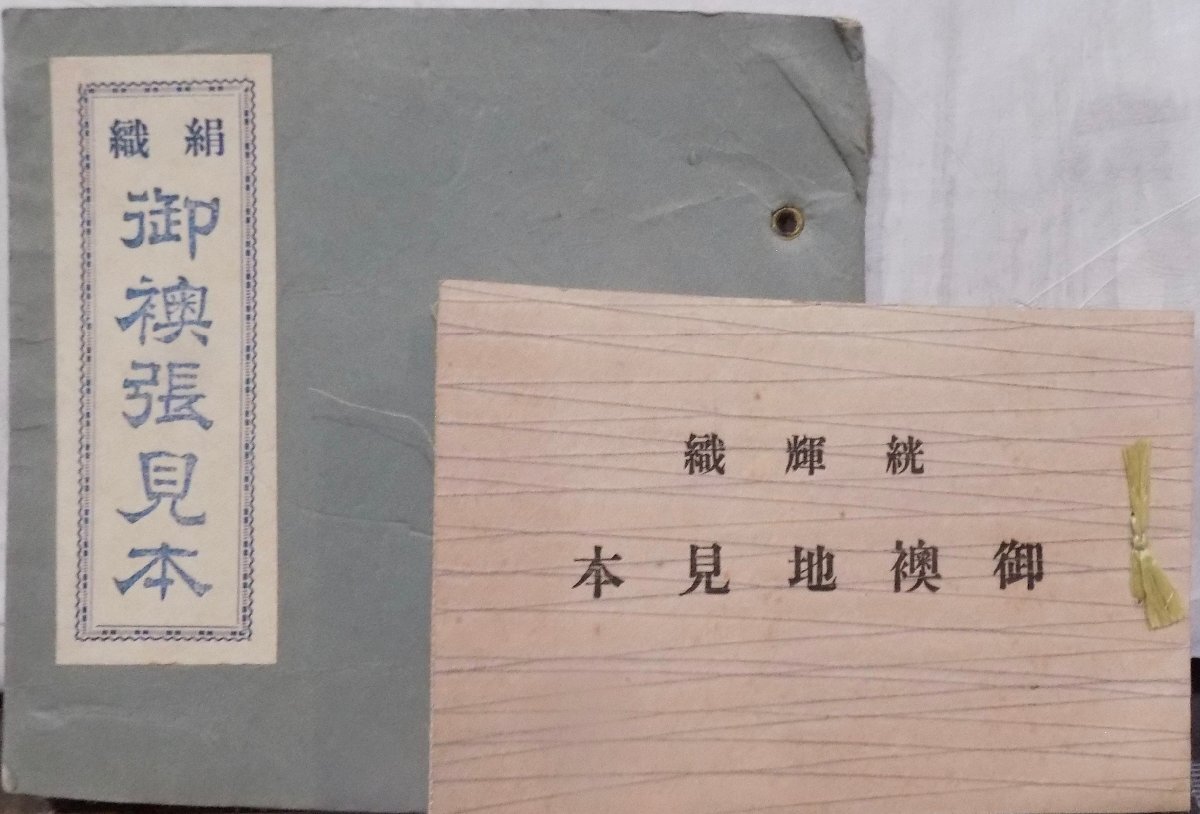 絹織
御襖張見本
絖輝織
御襖地見本